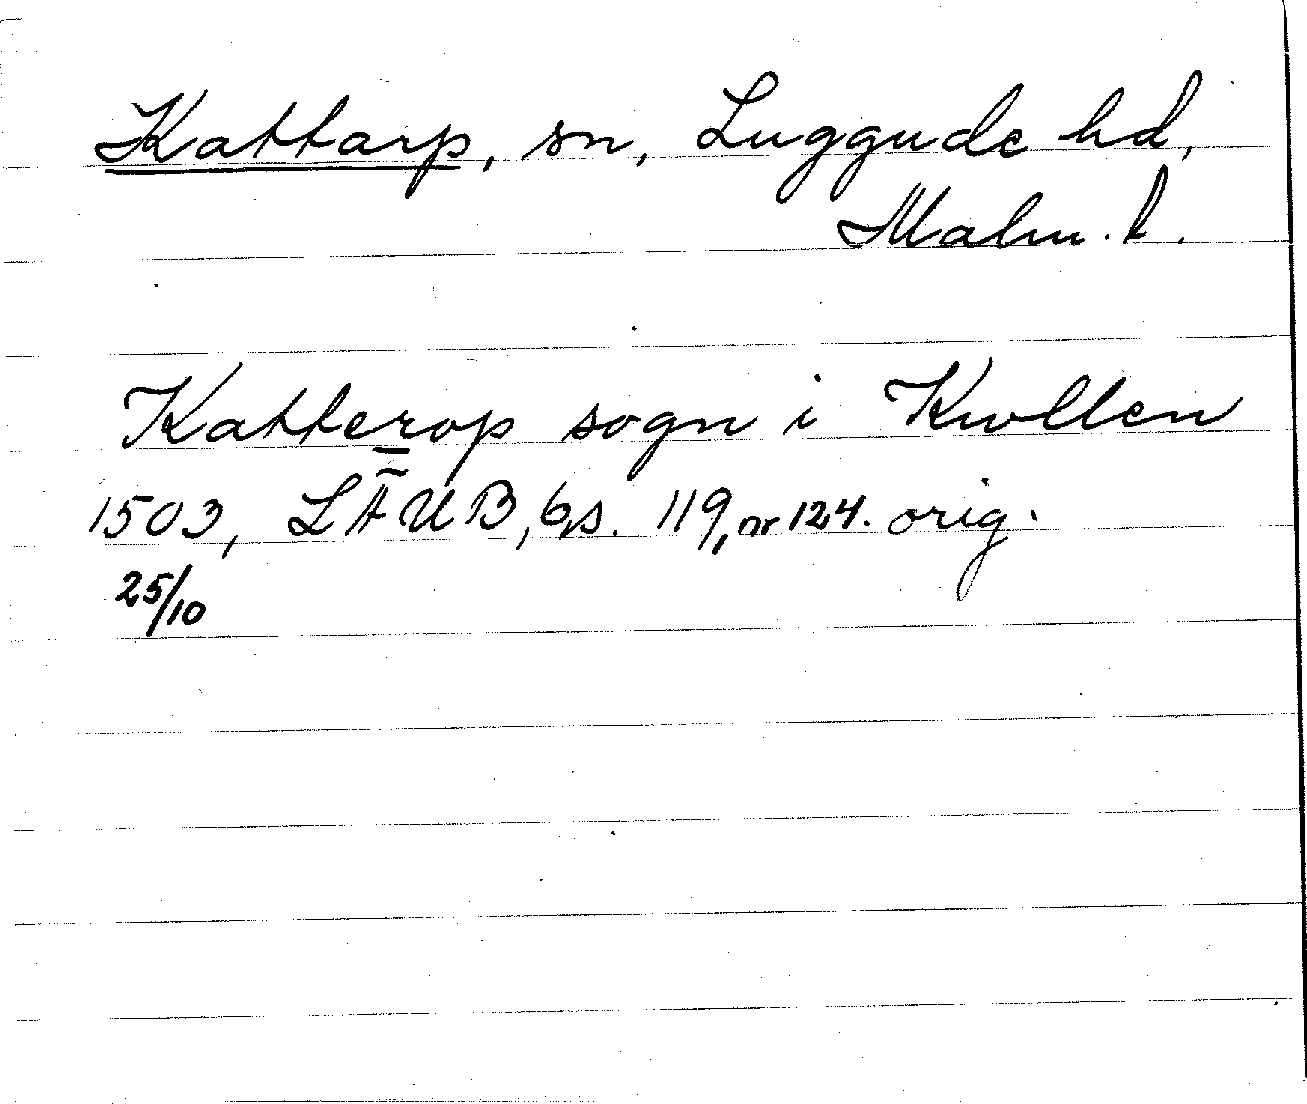 Kattarp, sn, Luggude hd,
Malm. l.
Katterop sogn i Kwllen
1503, LÄUB, 6, s. 119, nr 124. orig.
25/10